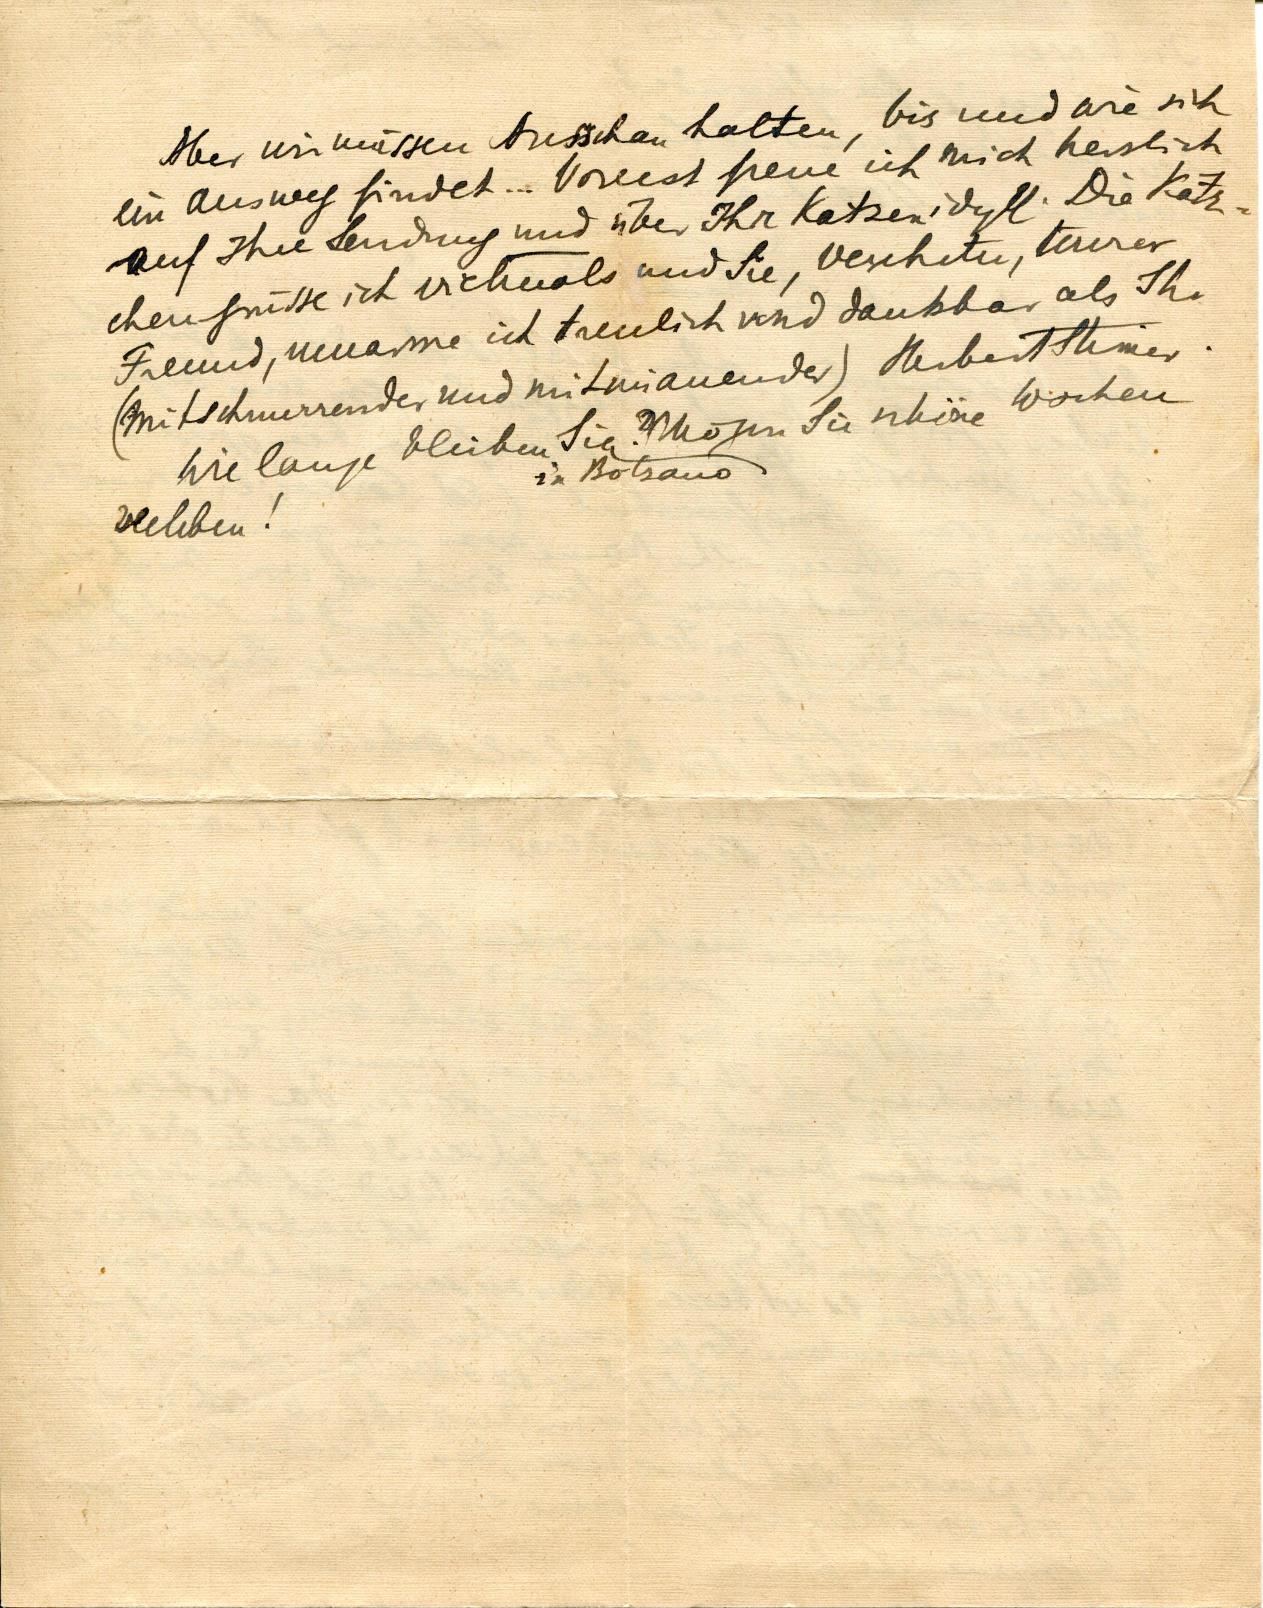 Aber wir müssen Ausschau halten, bis und wie sich
ein Ausweg findet... Vorerst freue ich mich herzlich
auf Ihre Sendung und über Ihr Katzenidyll. Die Kätz-
chen grüsse ich vielmals und Sie, verehrter, teurer
Freund, umarme ich treulich und dankbar als Ihr
(mitschnurrender und mitmiauender) Herbert Steiner.
Wie lange bleiben Sie? Mögen Sie schöne Wochen
in Bolzano
verleben!